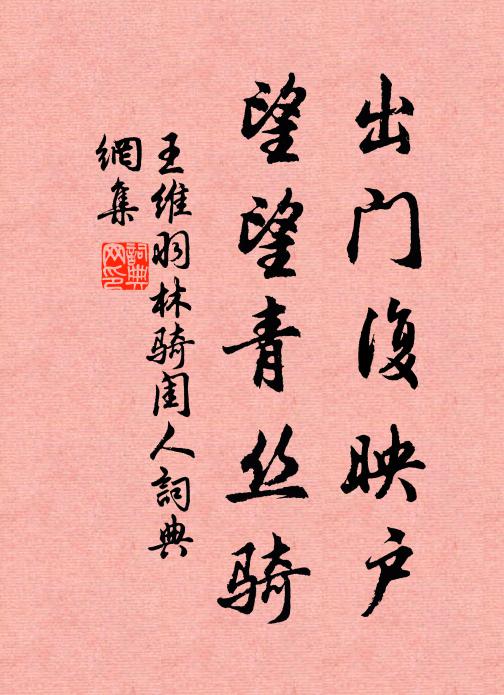 出门復映户
望望青丝骑
王维羽林骑闺人詞典
網集
詞典
网印